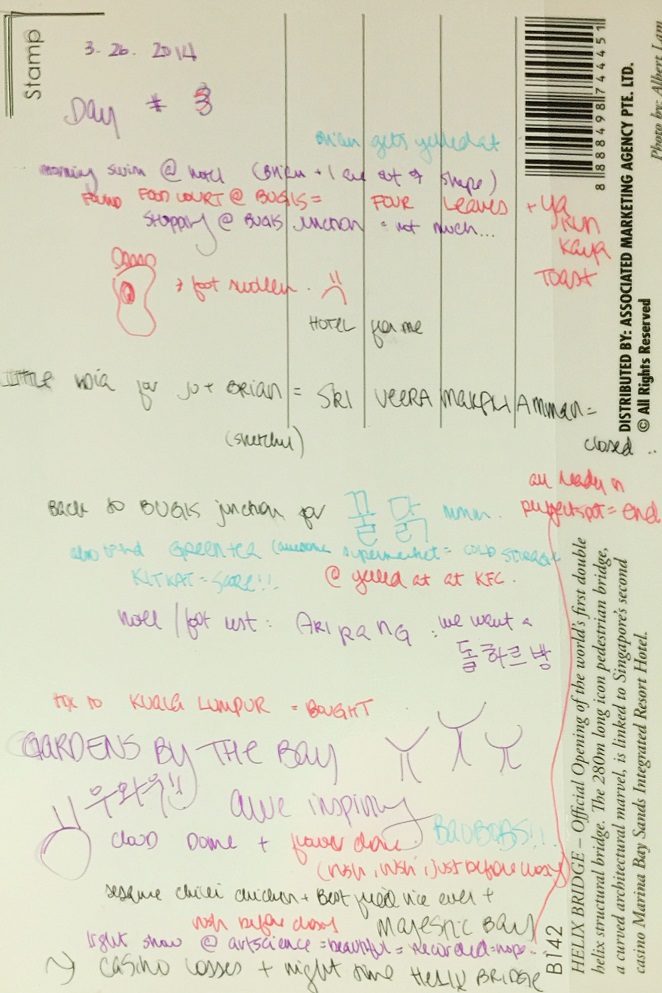 Stamp
3. 26. 2014
Day # 3
Brian gets yelled at
morning swim @ hotel (Brian + I are out of shape)
FOUND FOOD COURT @ BUGIS = FOUR Leaves + Ya Kun Kaya Toast
Shopping @ BUGIS Junction = not much...
→ foot swollen. :(
HOTEL for me
Little India for Jo + BRIAN = SRI VEERA MAKALI AMMAN =
(sketchy) closed ..
Back to BUGIS junction for 꿀 닭 mmm.
au lady in
perfect spot = end
also tried Green tea (awesome supermarket = COLD STORAGE
KITKAT = Score!!.
@ yelled at at KFC.
hotel / foot rest : ARIRANG : we want a
돌하르방
tix to KUALA LUMPUR = BOUGHT
GARDENS BY THE BAY
우와우!! awe inspiring
Cloud Dome + flower dome BAOBABS!!.
(rush, rush, just before closing)
sesame chili chicken + Best fried rice ever +
rush before closing Majestic Bay
light show @ artscience = beautiful = recorded = nope..
→ casino losses + night time HELIX BRIDGE
8 888498 744451
DISTRIBUTED BY: ASSOCIATED MARKETING AGENCY PTE. LTD.
© All Rights Reserved
Photo by: Albert Lam
B142
HELIX BRIDGE – Official Opening of the world's first double
helix structural bridge. The 280m long icon pedestrian bridge,
a curved architectural marvel, is linked to Singapore's second
casino Marina Bay Sands Integrated Resort Hotel.